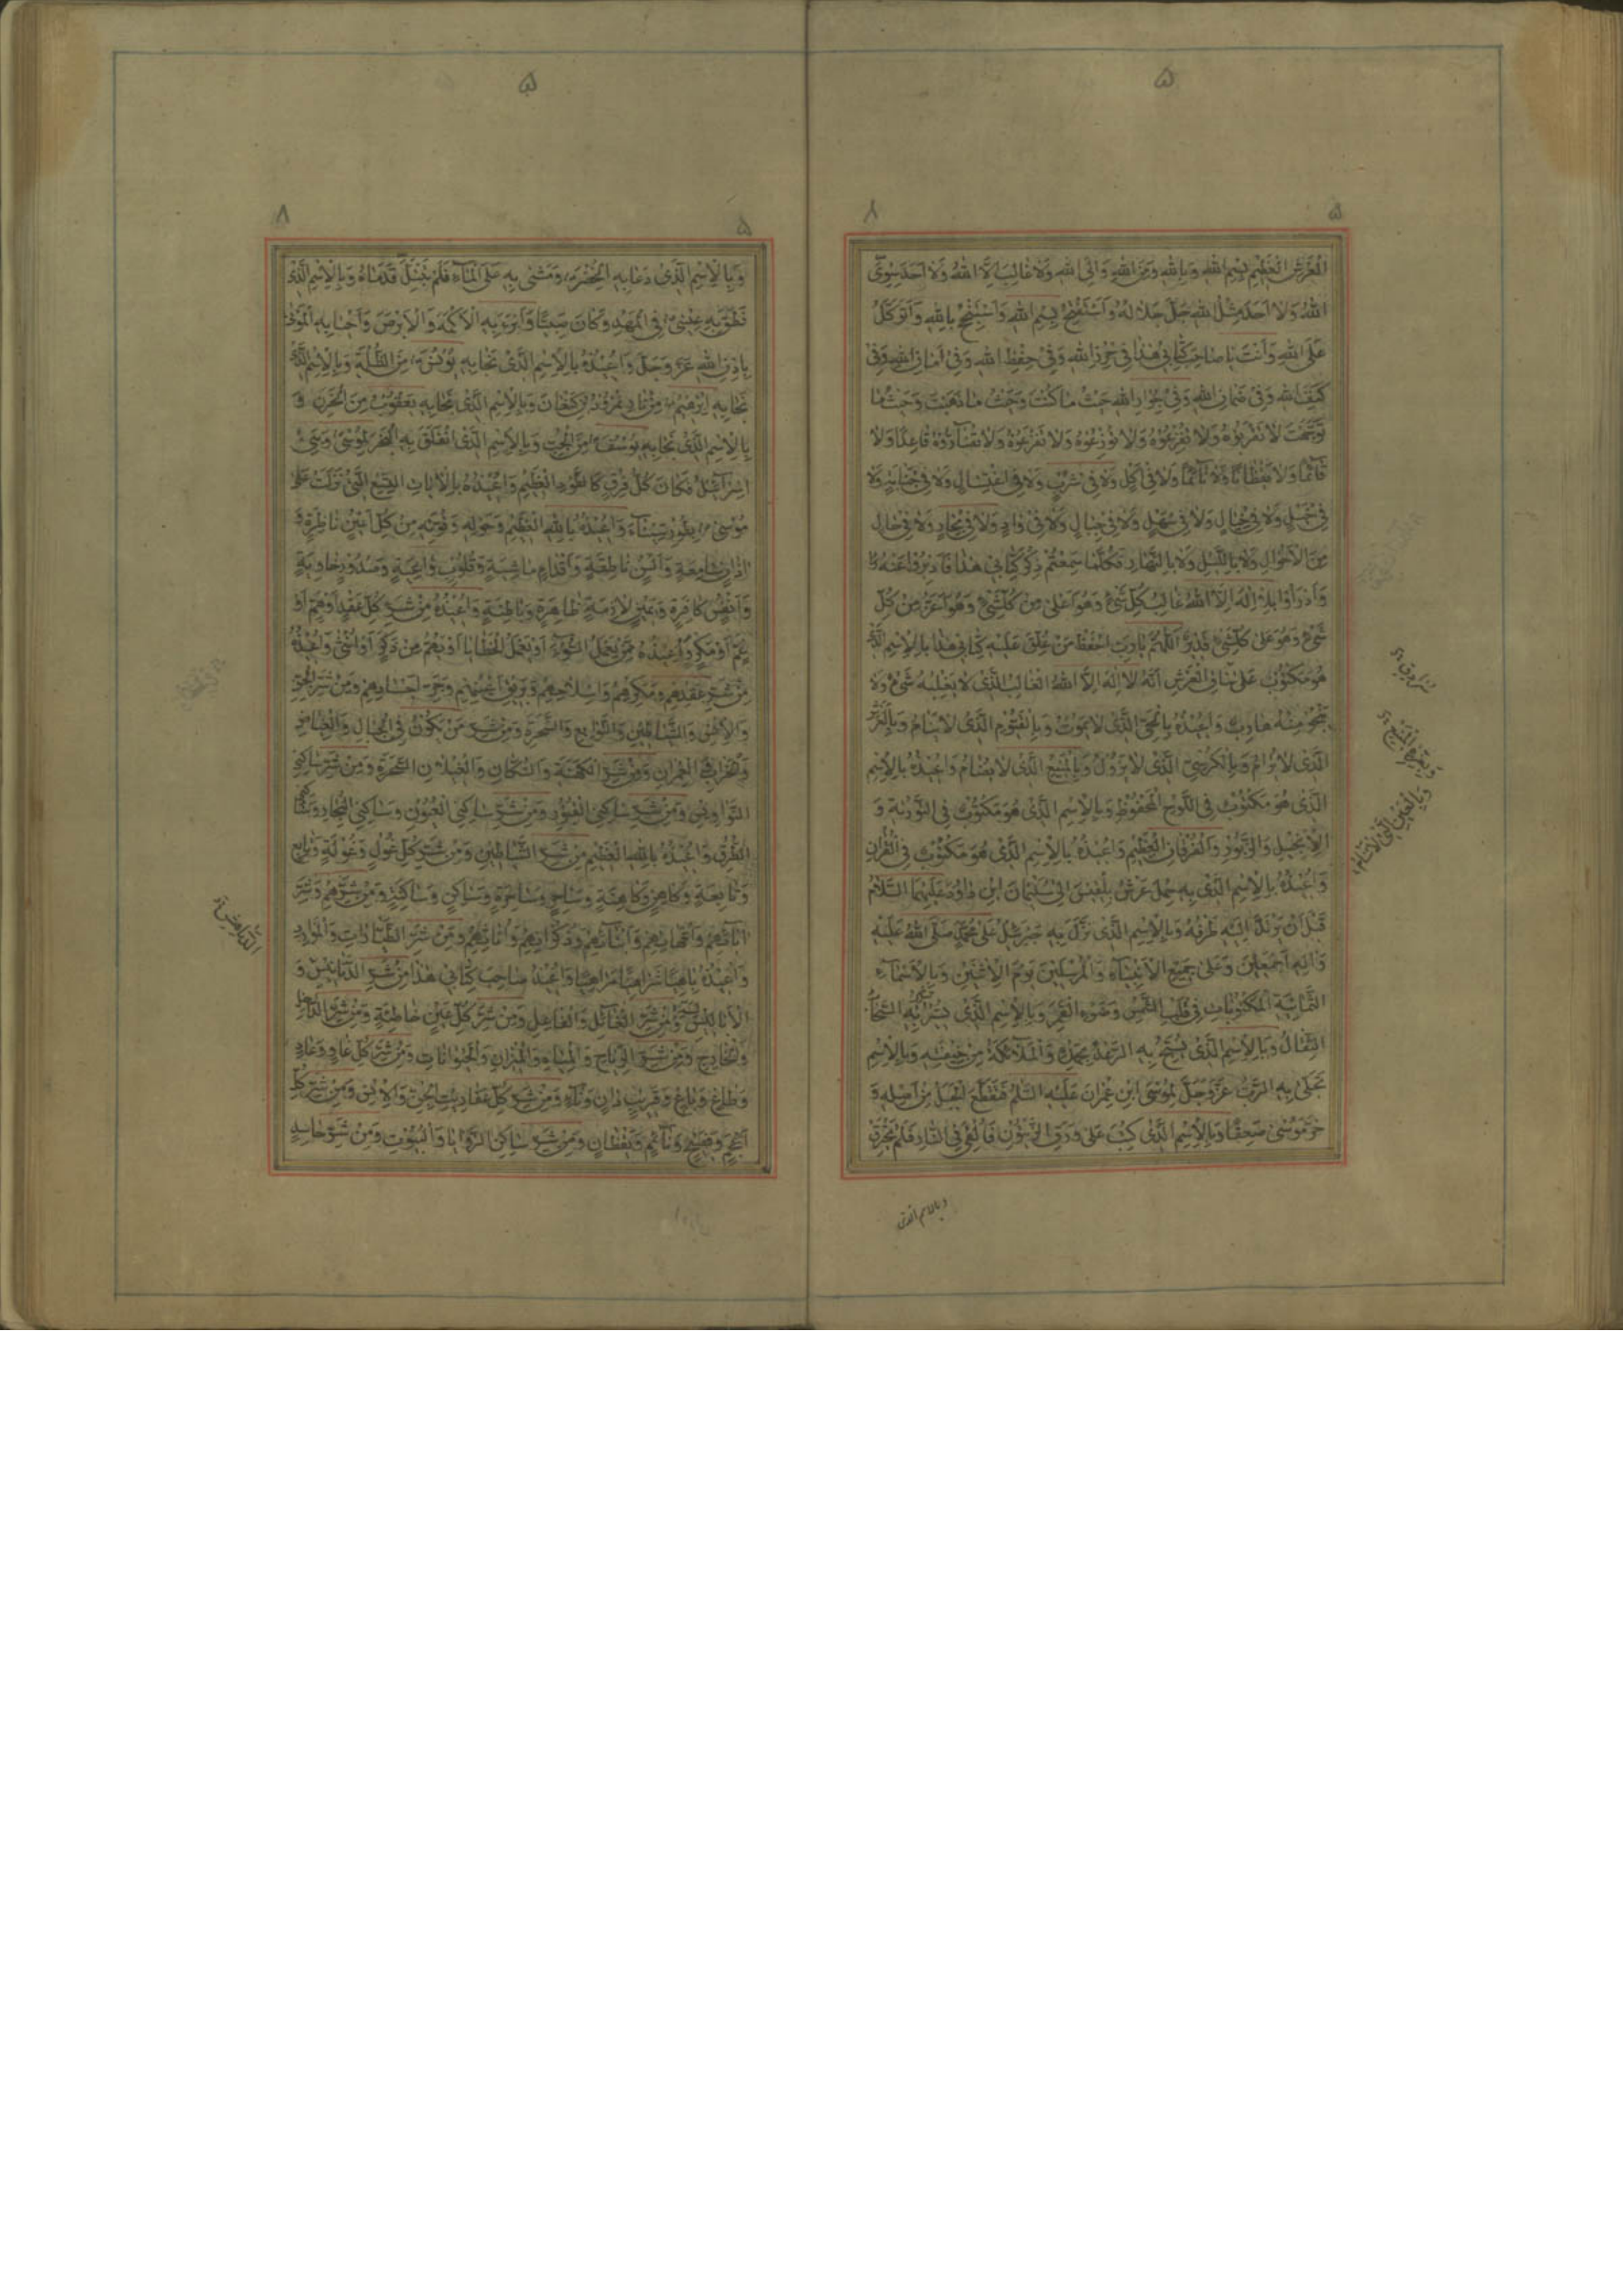 ۵
۸
۵
الْعَرْشِ الْعَظِيْمِ بِسْمِ اللهِ وَبِاللهِ وَمِنَ اللهِ وَاِلَى اللهِ وَلَا غَالِبَ اِلَّا اللهُ وَلَا اَحَدَ سِوَى
اللهُ وَلَا اَحَدَ مِثْلُ اللهِ جَلَّ جَلَالُهُ وَاَسْتَفْتِحُ بِسْمِ اللهِ وَاَسْتَنْجِحُ بِاللهِ وَاَتَوَكَّلُ
عَلَى اللهِ وَاَنْتَ يَا صَاحِبَ كِتَابِيْ هٰذَا فِيْ حِرْزِ اللهِ وَفِيْ حِفْظِ اللهِ وَفِيْ اَمَانِ اللهِ وَفِيْ
كَنَفِ اللهِ وَفِيْ ضَمَانِ اللهِ وَفِيْ جِوَارِ اللهِ حَيْثُ مَا كُنْتَ وَحَيْثُ مَا ذَهَبْتَ وَحَيْثُ مَا
تَوَجَّهْتَ لَا تَقْرَبُوْهُ وَلَا تُفْزِعُوْهُ وَلَا تَضُرُّوْهُ قَاعِدًا وَلَا
قَآئِمًا وَلَا يَقْظَانًا وَلَا نَآئِمًا وَلَا فِيْ اَكْلٍ وَلَا فِيْ شُرْبٍ وَلَا فِيْ اغْتِسَالٍ وَلَا فِيْ جَنَابَةٍ وَلَا
فِيْ جَبَلٍ وَلَا فِيْ سَهْلٍ وَلَا فِيْ جِبَالٍ وَلَا فِيْ وَادٍ وَلَا فِيْ بِحَارٍ وَلَا فِيْ حَالٍ
مِنَ الْاَحْوَالِ وَلَا بِاللَّيْلِ وَلَا بِالنَّهَارِ فَكُلَّمَا سَمِعْتُمْ ذِكْرَ كِتَابِيْ هٰذَا فَادْبِرُوْا عَنْهُ
لَا اِلٰهَ اِلَّا اللهُ غَالِبُ كُلِّ شَيْءٍ وَهُوَ اَعْلٰى مِنْ كُلِّ شَيْءٍ وَهُوَ اَعَزُّ مِنْ كُلِّ
شَيْءٍ وَهُوَ عَلٰى كُلِّ شَيْءٍ قَدِيْرٌ اَللّٰهُمَّ يَا رَبِّ احْفَظْ مَنْ عُلِّقَ عَلَيْهِ كِتَابِيْ هٰذَا بِالْاِسْمِ الَّذِيْ
هُوَ مَكْتُوْبٌ عَلٰى سَاقِ الْعَرْشِ اَنَّهُ لَا اِلٰهَ اِلَّا اللهُ الْغَالِبُ الَّذِيْ لَا يَغْلِبُهُ شَيْءٌ وَلَا
يَنْجُوْ مِنْهُ هَارِبٌ وَاُعِيْذُهُ بِالْحَيِّ الَّذِيْ لَا يَمُوْتُ وَبِالْقَيُّوْمِ الَّذِيْ لَا يَنَامُ وَبِالْعَرْشِ
الَّذِيْ لَا يُرَامُ وَبِالْكُرْسِيِّ الَّذِيْ لَا يَزُوْلُ وَبِالْمَنِيْعِ الَّذِيْ لَا يُضَامُ وَاُعِيْذُهُ بِالْاِسْمِ
الَّذِيْ هُوَ مَكْتُوْبٌ فِي اللَّوْحِ الْمَحْفُوْظِ وَبِالْاِسْمِ الَّذِيْ هُوَ مَكْتُوْبٌ فِي التَّوْرٰيةِ وَ
الْاِنْجِيْلِ وَالزَّبُوْرِ وَالْفُرْقَانِ الْعَظِيْمِ وَاُعِيْذُهُ بِالْاِسْمِ الَّذِيْ هُوَ مَكْتُوْبٌ فِي الْقُرْاٰنِ
وَاُعِيْذُهُ بِالْاِسْمِ الَّذِيْ بِهِ حُمِلَ عَرْشُ بِلْقِيْسَ اِلٰى سُلَيْمَانَ ابْنِ دَاوُدَ عَلَيْهِمَا السَّلَامُ
قَبْلَ اَنْ يَرْتَدَّ اِلَيْهِ طَرْفُهُ وَبِالْاِسْمِ الَّذِيْ نَزَلَ بِهِ جَبْرَئِيْلُ عَلٰى مُحَمَّدٍ صَلَّى اللهُ عَلَيْهِ
وَاٰلِهِ اَجْمَعِيْنَ وَعَلٰى جَمِيْعِ الْاَنْبِيَآءِ وَالْمُرْسَلِيْنَ يَوْمَ الْاِثْنَيْنِ وَبِالْاَسْمَآءِ
الثَّمَانِيَةِ الْمَكْتُوْبَاتِ فِيْ قَلْبِ الشَّمْسِ وَضَوْءِ الْقَمَرِ وَبِالْاِسْمِ الَّذِيْ يَسِيْرُ بِهِ السَّحَابُ
الثِّقَالُ وَبِالْاِسْمِ الَّذِيْ يُسَبِّحُ بِهِ الرَّعْدُ بِحَمْدِهِ وَالْمَلٰٓئِكَةُ مِنْ خِيْفَتِهِ وَبِالْاِسْمِ
تَجَلّٰى بِهِ الرَّبُّ عَزَّ وَجَلَّ لِمُوْسَى ابْنِ عِمْرَانَ عَلَيْهِ السَّلَامُ فَتَقَطَّعَ الْجَبَلُ مِنْ اَصْلِهِ وَ
خَرَّ مُوْسٰى صَعِقًا وَبِالْاِسْمِ الَّذِيْ كُتِبَ عَلٰى وَرَقِ الزَّيْتُوْنِ فَاُلْقِيَ فِي النَّارِ فَلَمْ يَحْتَرِقْ
وبالاسم الذي
وَبِالْعَيْنِ الَّتِيْ لَا تَنَامُ
۵
۸
۵
وَبِالْاِسْمِ الَّذِيْ دَعَا بِهِ الْخِضْرُ وَمَشٰى بِهِ عَلَى الْمَآءِ فَلَمْ يَبْتَلَّ قَدَمَاهُ وَبِالْاِسْمِ الَّذِيْ
نَطَقَ بِهِ عِيْسٰى فِي الْمَهْدِ وَكَانَ صَبِيًّا وَاَبْرَءَ بِهِ الْاَكْمَهَ وَالْاَبْرَصَ وَاَحْيَا بِهِ الْمَوْتٰى
بِاِذْنِ اللهِ عَزَّ وَجَلَّ وَاُعِيْذُهُ بِالْاِسْمِ الَّذِيْ نَجَا بِهِ يُوْنُسُ مِنَ الظُّلْمَةِ وَبِالْاِسْمِ الَّذِيْ
نَجَا بِهِ اِبْرٰهِيْمُ مِنْ نَارِ نُمْرُوْدِ بْنِ كَنْعَانَ وَبِالْاِسْمِ الَّذِيْ نَجَا بِهِ يَعْقُوْبُ مِنَ الْحُزْنِ وَ
بِالْاِسْمِ الَّذِيْ نَجَا بِهِ يُوْسُفُ مِنَ الْجُبِّ وَبِالْاِسْمِ الَّذِيْ انْفَلَقَ بِهِ الْبَحْرُ لِمُوْسٰى وَبَنِيْ
اِسْرَآئِيْلَ فَكَانَ كُلُّ فِرْقٍ كَالطَّوْدِ الْعَظِيْمِ وَاُعِيْذُهُ بِالْاٰيَاتِ التِّسْعِ الَّتِيْ نَزَلَتْ عَلٰى
مُوْسٰى بِطُوْرِ سِيْنَآءَ وَاُعِيْذُهُ بِاللهِ الْعَظِيْمِ وَحَوْلِهِ وَقُوَّتِهِ مِنْ كُلِّ اَعْيُنٍ نَاظِرَةٍ وَ
اٰذَانٍ سَامِعَةٍ وَاَلْسُنٍ نَاطِقَةٍ وَاَقْدَامٍ مَاشِيَةٍ وَقُلُوْبٍ وَاعِيَةٍ وَصُدُوْرٍ خَاوِيَةٍ
وَاَنْفُسٍ كَافِرَةٍ وَعَيْنٍ لَازِمَةٍ ظَاهِرَةٍ وَبَاطِنَةٍ وَاُعِيْذُهُ مِنْ شَرِّ كُلِّ
غَمٍّ اَوْ مَكْرٍ وَاُعِيْذُهُ مِمَّنْ يَعْمَلُ السُّوْءَ اَوْ يَعْمَلُ الْخَطَايَا اَوْ يَهُمُّ مِنْ ذَكَرٍ اَوْ اُنْثٰى وَاُعِيْذُهُ
مِنْ شَرِّ عُقَدِهِمْ وَمَكْرِهِمْ وَسِلَاحِهِمْ وَبَرِيْقِ اَعْيُنِهِمْ وَحَرِّ اَجْسَادِهِمْ وَمِنْ شَرِّ الْجِنِّ
وَالْاِنْسِ وَالشَّيَاطِيْنِ وَالتَّوَابِعِ وَالسَّحَرَةِ وَمِنْ شَرِّ مَنْ يَكُوْنُ فِي الْجِبَالِ وَالْغِيَاضِ
وَالْخَرَابِ وَالْعُمْرَانِ وَمِنْ شَرِّ الْكَهَنَةِ وَالسُّكَّانِ السَّحَرَةِ وَمِنْ شَرِّ سَاكِنِ
النَّوَاوِيْسِ وَمِنْ شَرِّ سَاكِنِي الْقُبُوْرِ وَمِنْ شَرِّ سَاكِنِي الْعُيُوْنِ وَسَاكِنِي الْبِحَارِ وَسَاكِنِي
الطُّرُقِ وَاُعِيْذُهُ بِاللهِ الْعَظِيْمِ مِنْ شَرِّ الشَّيَاطِيْنِ وَمِنْ شَرِّ كُلِّ غُوْلٍ وَغُوْلَةٍ وَتَابِعٍ
وَتَابِعَةٍ وَكَاهِنٍ وَكَاهِنَةٍ وَسَاحِرٍ وَسَاحِرَةٍ وَسَاكِنٍ وَسَاكِنَةٍ وَمِنْ شَرِّهِمْ وَشَرِّ
اٰبَآئِهِمْ وَاُمَّهَاتِهِمْ وَاَبْنَآئِهِمْ وَذُكُوْرِهِمْ وَاُنَاثِهِمْ وَمِنْ شَرِّ الطَّيَّارَاتِ وَالْمَوَارِدِ
وَاُعِيْذُهُ وَاُعِيْذُ صَاحِبَ كِتَابِيْ هٰذَا مِنْ شَرِّ الدَّنَاهِشِ وَ
الْاَبَالِسِ وَمِنْ شَرِّ الْقَاتِلِ وَالْفَاعِلِ وَمِنْ شَرِّ كُلِّ عَيْنٍ خَاطِئَةٍ وَمِنْ شَرِّ الدَّاخِلِ
وَالْخَارِجِ وَمِنْ شَرِّ الرِّيَاحِ وَالْمِيَاهِ وَالنِّيْرَانِ وَالْحَيْوَانَاتِ وَمِنْ شَرِّ كُلِّ عَادٍ وَغَادٍ
وَطَاغٍ وَبَاغٍ وَقَرِيْبٍ دَانٍ وَنَآءٍ وَمِنْ شَرِّ كُلِّ عَفَارِيْتِ الْجِنِّ وَالْاِنْسِ وَمِنْ شَرِّ كُلِّ
اَعْجَمَ وَفَصِيْحٍ وَنَآئِمٍ وَيَقْظَانٍ وَمِنْ شَرِّ سَاكِنِ الزَّوَايَا وَالْبُيُوْتِ وَمِنْ شَرِّ حَاسِدٍ